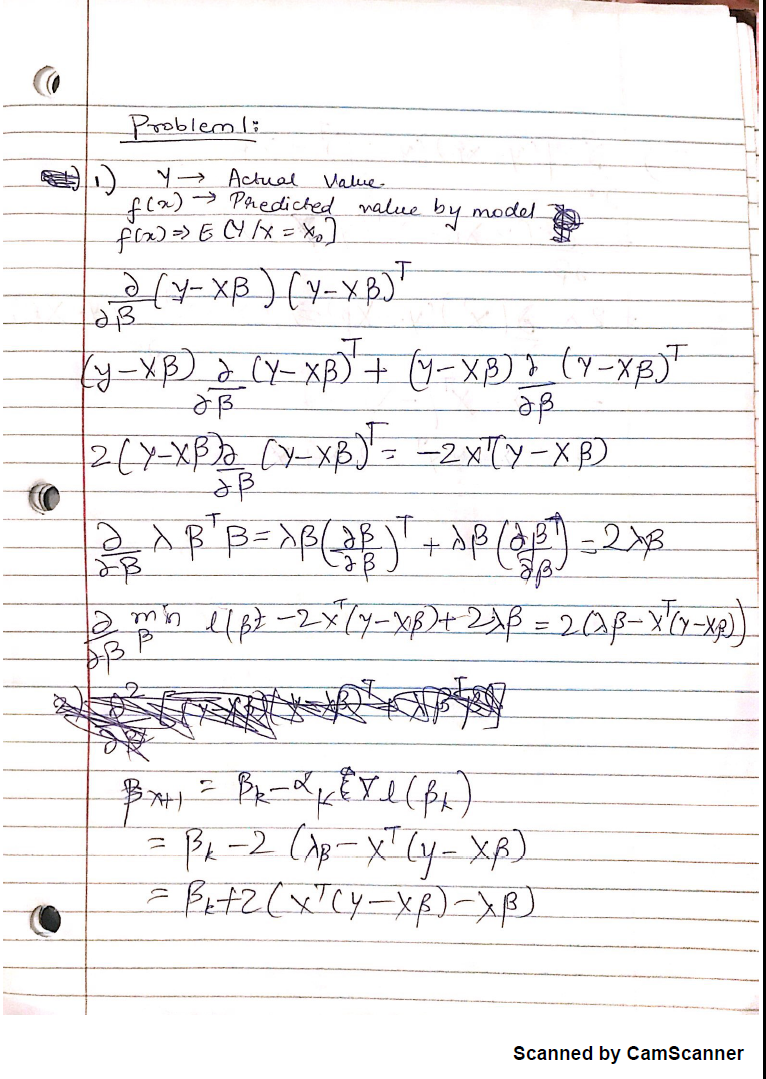 Problem 1:
1.) Y → Actual Value.
f(x) → Predicted value by model
f(x) ⇒ E (Y/X = X₀]
∂/∂β (y-Xβ) (y-Xβ)ᵀ
(y-Xβ) ∂/∂β (y-Xβ)ᵀ + (y-Xβ) ∂/∂β (y-Xβ)ᵀ
2(y-Xβ) ∂/∂β (y-Xβ)ᵀ = -2xᵀ(y-Xβ)
∂/∂β λ βᵀβ = λβ(∂β/∂β)ᵀ + λβ(∂βᵀ/∂β) = 2λβ
∂/∂β min β l(β) = -2xᵀ(y-Xβ) + 2λβ = 2(λβ - Xᵀ(y-Xβ))
2)
= βₖ - αₖ ∇l(βₖ)
= βₖ - 2 (λβ - Xᵀ(y-Xβ)
= βₖ + 2(xᵀ(y-Xβ) - λβ)
Scanned by CamScanner